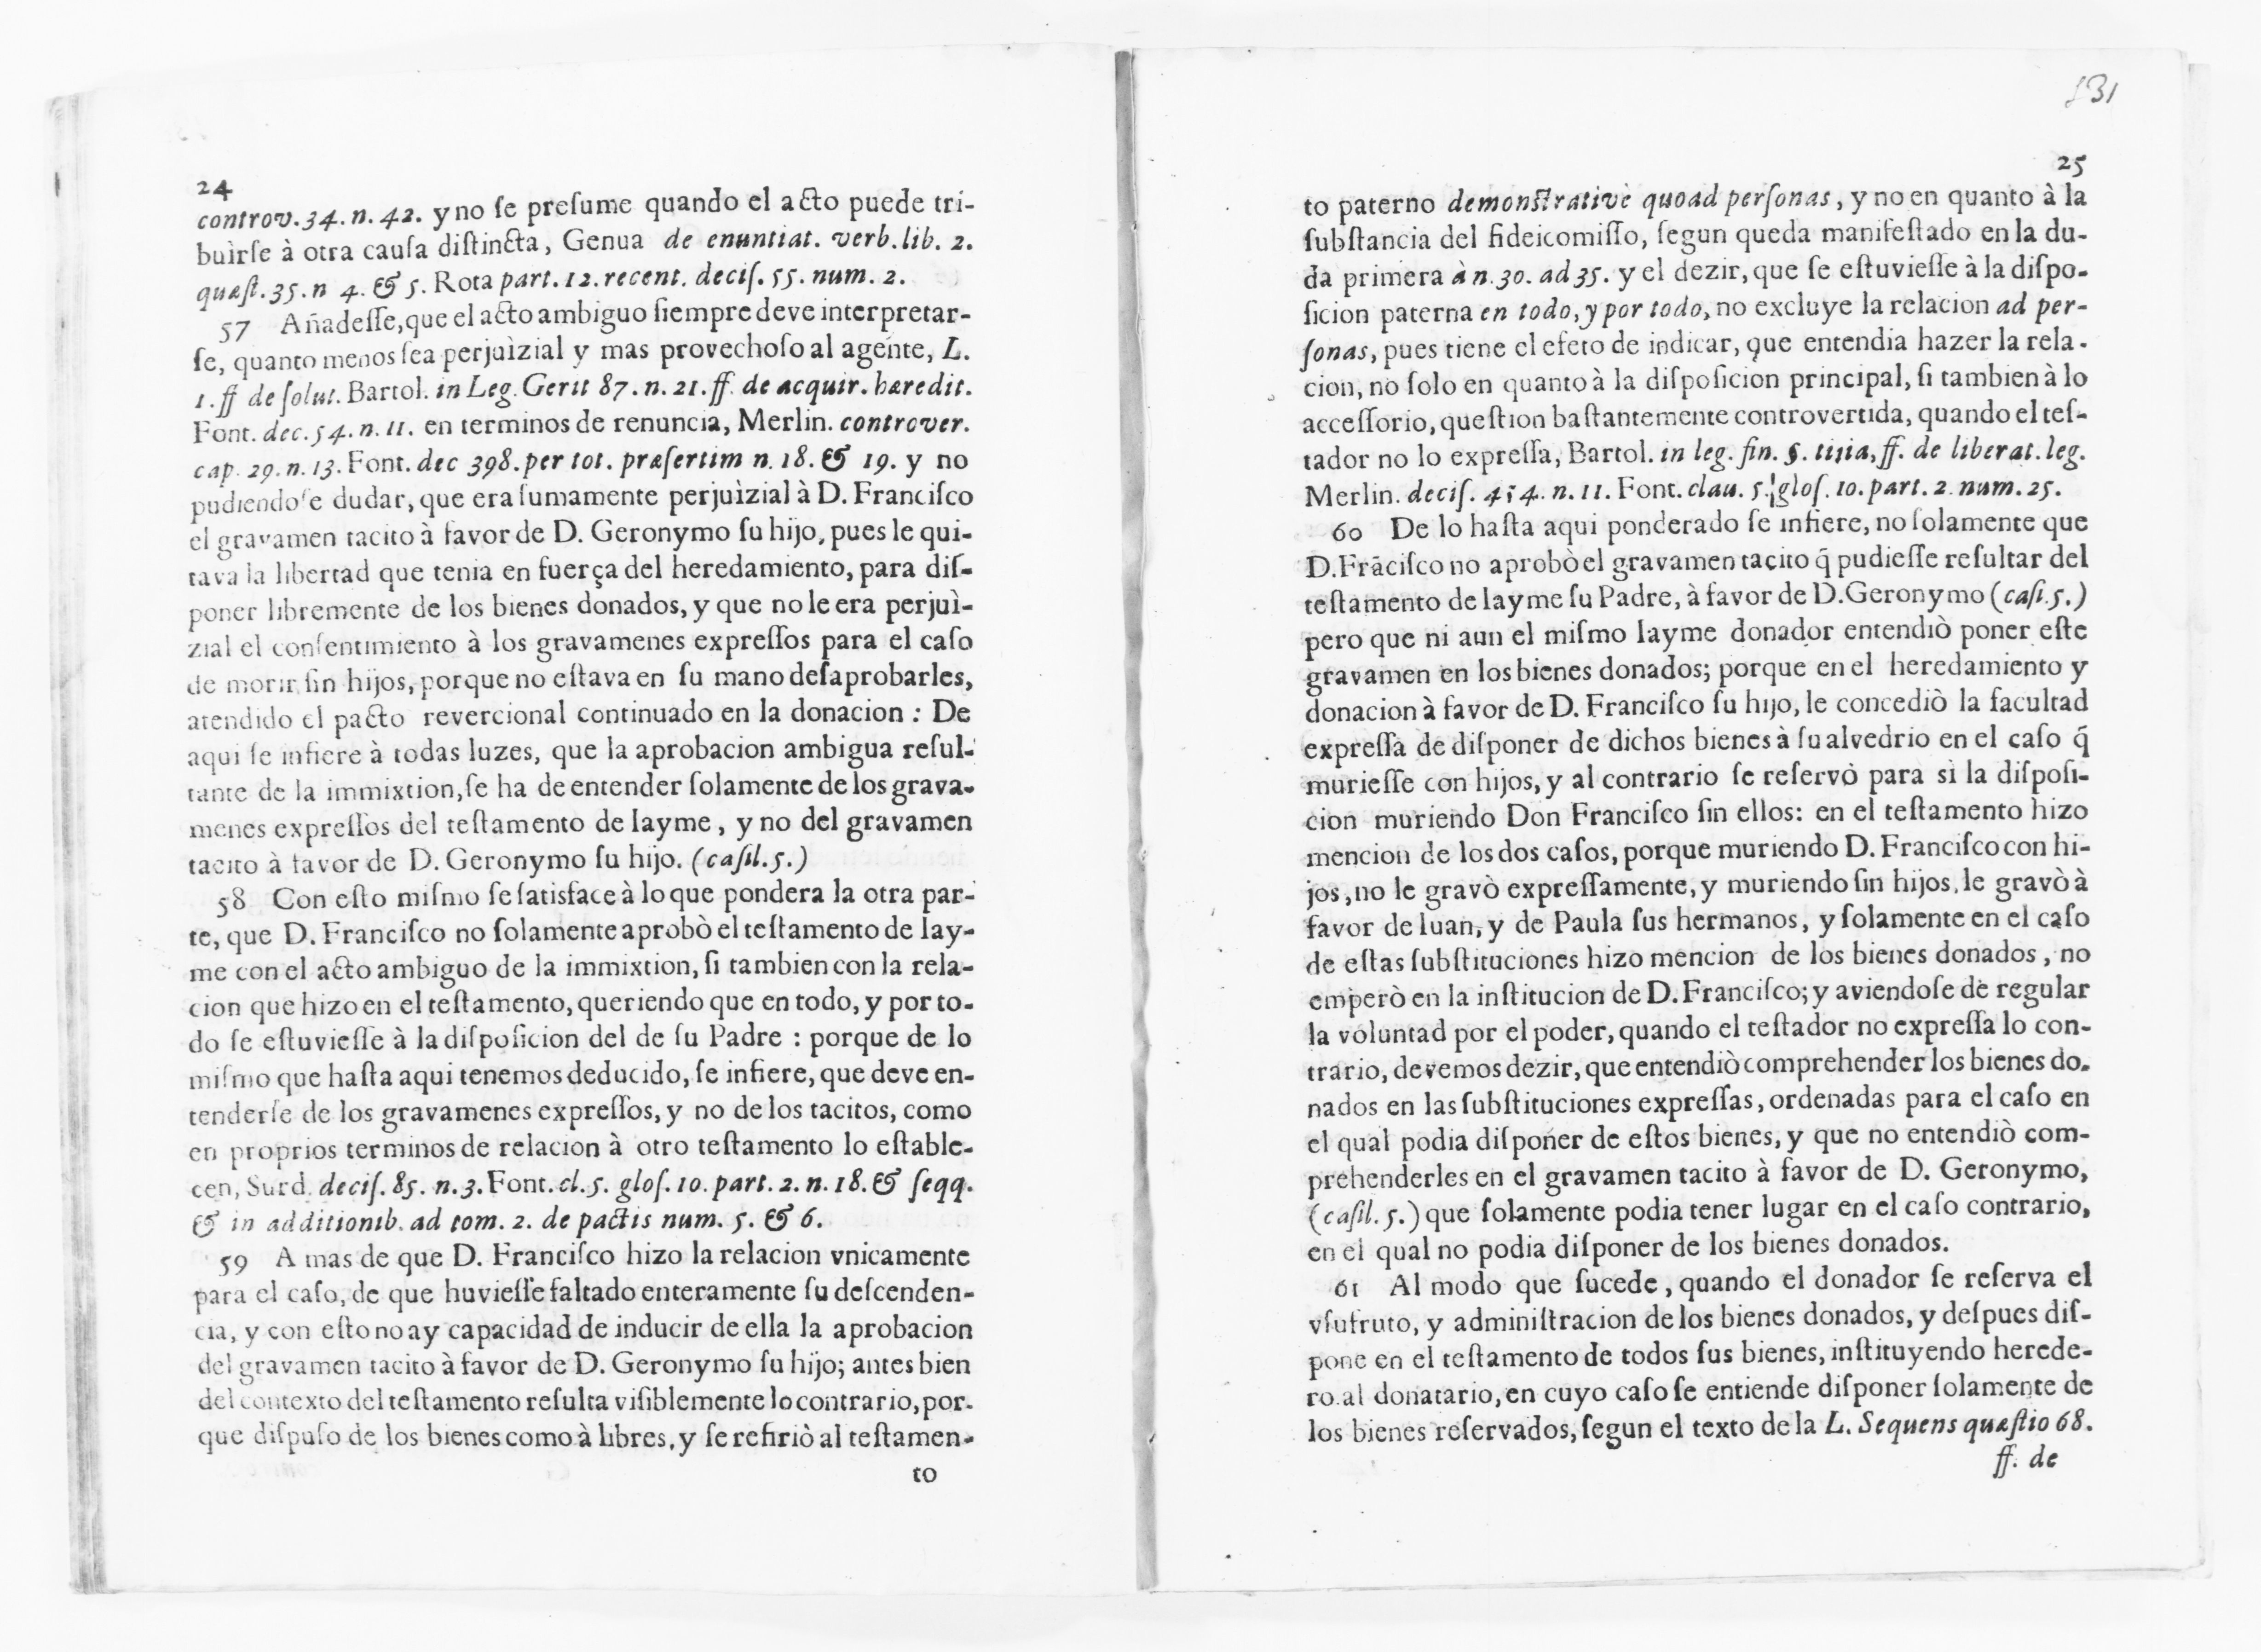 24
controv.34.n.42. y no ſe preſume quando el acto puede tri-
buìrſe à otra cauſa diſtincta, Genua de enuntiat. verb.lib. 2.
quæſt.35.n 4. & 5. Rota part.12.recent. deciſ.55.num.2.
57 Añadeſſe,que el acto ambiguo ſiempre deve interpretar-
ſe, quanto menos ſea perjuìzial y mas provechoſo al agente, L.
1.ff de ſolut. Bartol. in Leg.Gerit 87.n.21.ff. de acquir.hæredit.
Font. dec.54.n.11. en terminos de renuncia, Merlin. controver.
cap. 29.n.13.Font. dec 398.per tot. præſertim n.18.& 19. y no
pudiendoſe dudar, que era ſumamente perjuìzial à D. Franciſco
el gravamen tacito à favor de D. Geronymo ſu hijo, pues le qui-
tava la libertad que tenia en fuerça del heredamiento, para diſ-
poner libremente de los bienes donados, y que no le era perjuì-
zial el conſentimiento à los gravamenes expreſſos para el caſo
de morir ſin hijos, porque no eſtava en ſu mano deſaprobarles,
atendido el pacto revercional continuado en la donacion : De
aqui ſe infiere à todas luzes, que la aprobacion ambigua reſul-
tante de la immixtion,ſe ha de entender ſolamente de los grava-
menes expreſſos del teſtamento de Iayme, y no del gravamen
tacito à favor de D. Geronymo ſu hijo. (caſil.5.)
58 Con eſto miſmo ſe ſatisface à lo que pondera la otra par-
te, que D. Franciſco no ſolamente aprobò el teſtamento de Iay-
me con el acto ambiguo de la immixtion, ſi tambien con la rela-
cion que hizo en el teſtamento, queriendo que en todo, y por to-
do ſe eſtuvieſſe à la diſpoſicion del de ſu Padre : porque de lo
miſmo que haſta aqui tenemos deducido, ſe infiere, que deve en-
tenderſe de los gravamenes expreſſos, y no de los tacitos, como
en proprios terminos de relacion à otro teſtamento lo eſtable-
cen, Surd. deciſ. 85. n.3.Font.cl.5. gloſ.10.part.2.n.18.& ſeqq.
& in additionib. ad tom. 2. de pactis num. 5. & 6.
59 A mas de que D. Franciſco hizo la relacion vnicamente
para el caſo, de que huvieſſe faltado enteramente ſu deſcenden-
cia, y con eſto no ay capacidad de inducir de ella la aprobacion
del gravamen tacito à favor de D. Geronymo ſu hijo; antes bien
del contexto del teſtamento reſulta viſiblemente lo contrario, por-
que diſpuſo de los bienes como à libres, y ſe refiriò al teſtamen-
to
131
25
to paterno demonſtrativè quoad perſonas, y no en quanto à la
ſubſtancia del fideicomiſſo, ſegun queda manifeſtado en la du-
da primera à n.30. ad 35. y el dezir, que ſe eſtuvieſſe à la diſpo-
ſicion paterna en todo, y por todo, no excluye la relacion ad per-
ſonas, pues tiene el efeto de indicar, que entendia hazer la rela-
cion, no ſolo en quanto à la diſpoſicion principal, ſi tambien à lo
acceſſorio, queſtion baſtantemente controvertida, quando el teſ-
tador no lo expreſſa, Bartol. in leg. fin. §. titia,ff. de liberat.leg.
Merlin. deciſ. 454. n.11. Font. clau. 5. gloſ.10.part.2.num.25.
60 De lo haſta aqui ponderado ſe infiere, no ſolamente que
D.Frãciſco no aprobò el gravamen tacito q̃ pudieſſe reſultar del
teſtamento de Iayme ſu Padre, à favor de D.Geronymo (caſi.5.)
pero que ni aun el miſmo Iayme donador entendiò poner eſte
gravamen en los bienes donados; porque en el heredamiento y
donacion à favor de D. Franciſco ſu hijo, le concediò la facultad
expreſſa de diſponer de dichos bienes à ſu alvedrio en el caſo q̃
murieſſe con hijos, y al contrario ſe reſervò para sì la diſpoſi-
cion muriendo Don Franciſco ſin ellos: en el teſtamento hizo
mencion de los dos caſos, porque muriendo D. Franciſco con hi-
jos, no le gravò expreſſamente, y muriendo ſin hijos, le gravò à
favor de Iuan, y de Paula ſus hermanos, y ſolamente en el caſo
de eſtas ſubſtituciones hizo mencion de los bienes donados, no
emperò en la inſtitucion de D. Franciſco; y aviendoſe de regular
la voluntad por el poder, quando el teſtador no expreſſa lo con-
trario, devemos dezir, que entendiò comprehender los bienes do-
nados en las ſubſtituciones expreſſas, ordenadas para el caſo en
el qual podia diſponer de eſtos bienes, y que no entendiò com-
prehenderles en el gravamen tacito à favor de D. Geronymo,
(caſil. 5.) que ſolamente podia tener lugar en el caſo contrario,
en el qual no podia diſponer de los bienes donados.
61 Al modo que ſucede, quando el donador ſe reſerva el
vſufruto, y adminiſtracion de los bienes donados, y deſpues diſ-
pone en el teſtamento de todos ſus bienes, inſtituyendo herede-
ro al donatario, en cuyo caſo ſe entiende diſponer ſolamente de
los bienes reſervados, ſegun el texto de la L. Sequens quæſtio 68.
ff. de